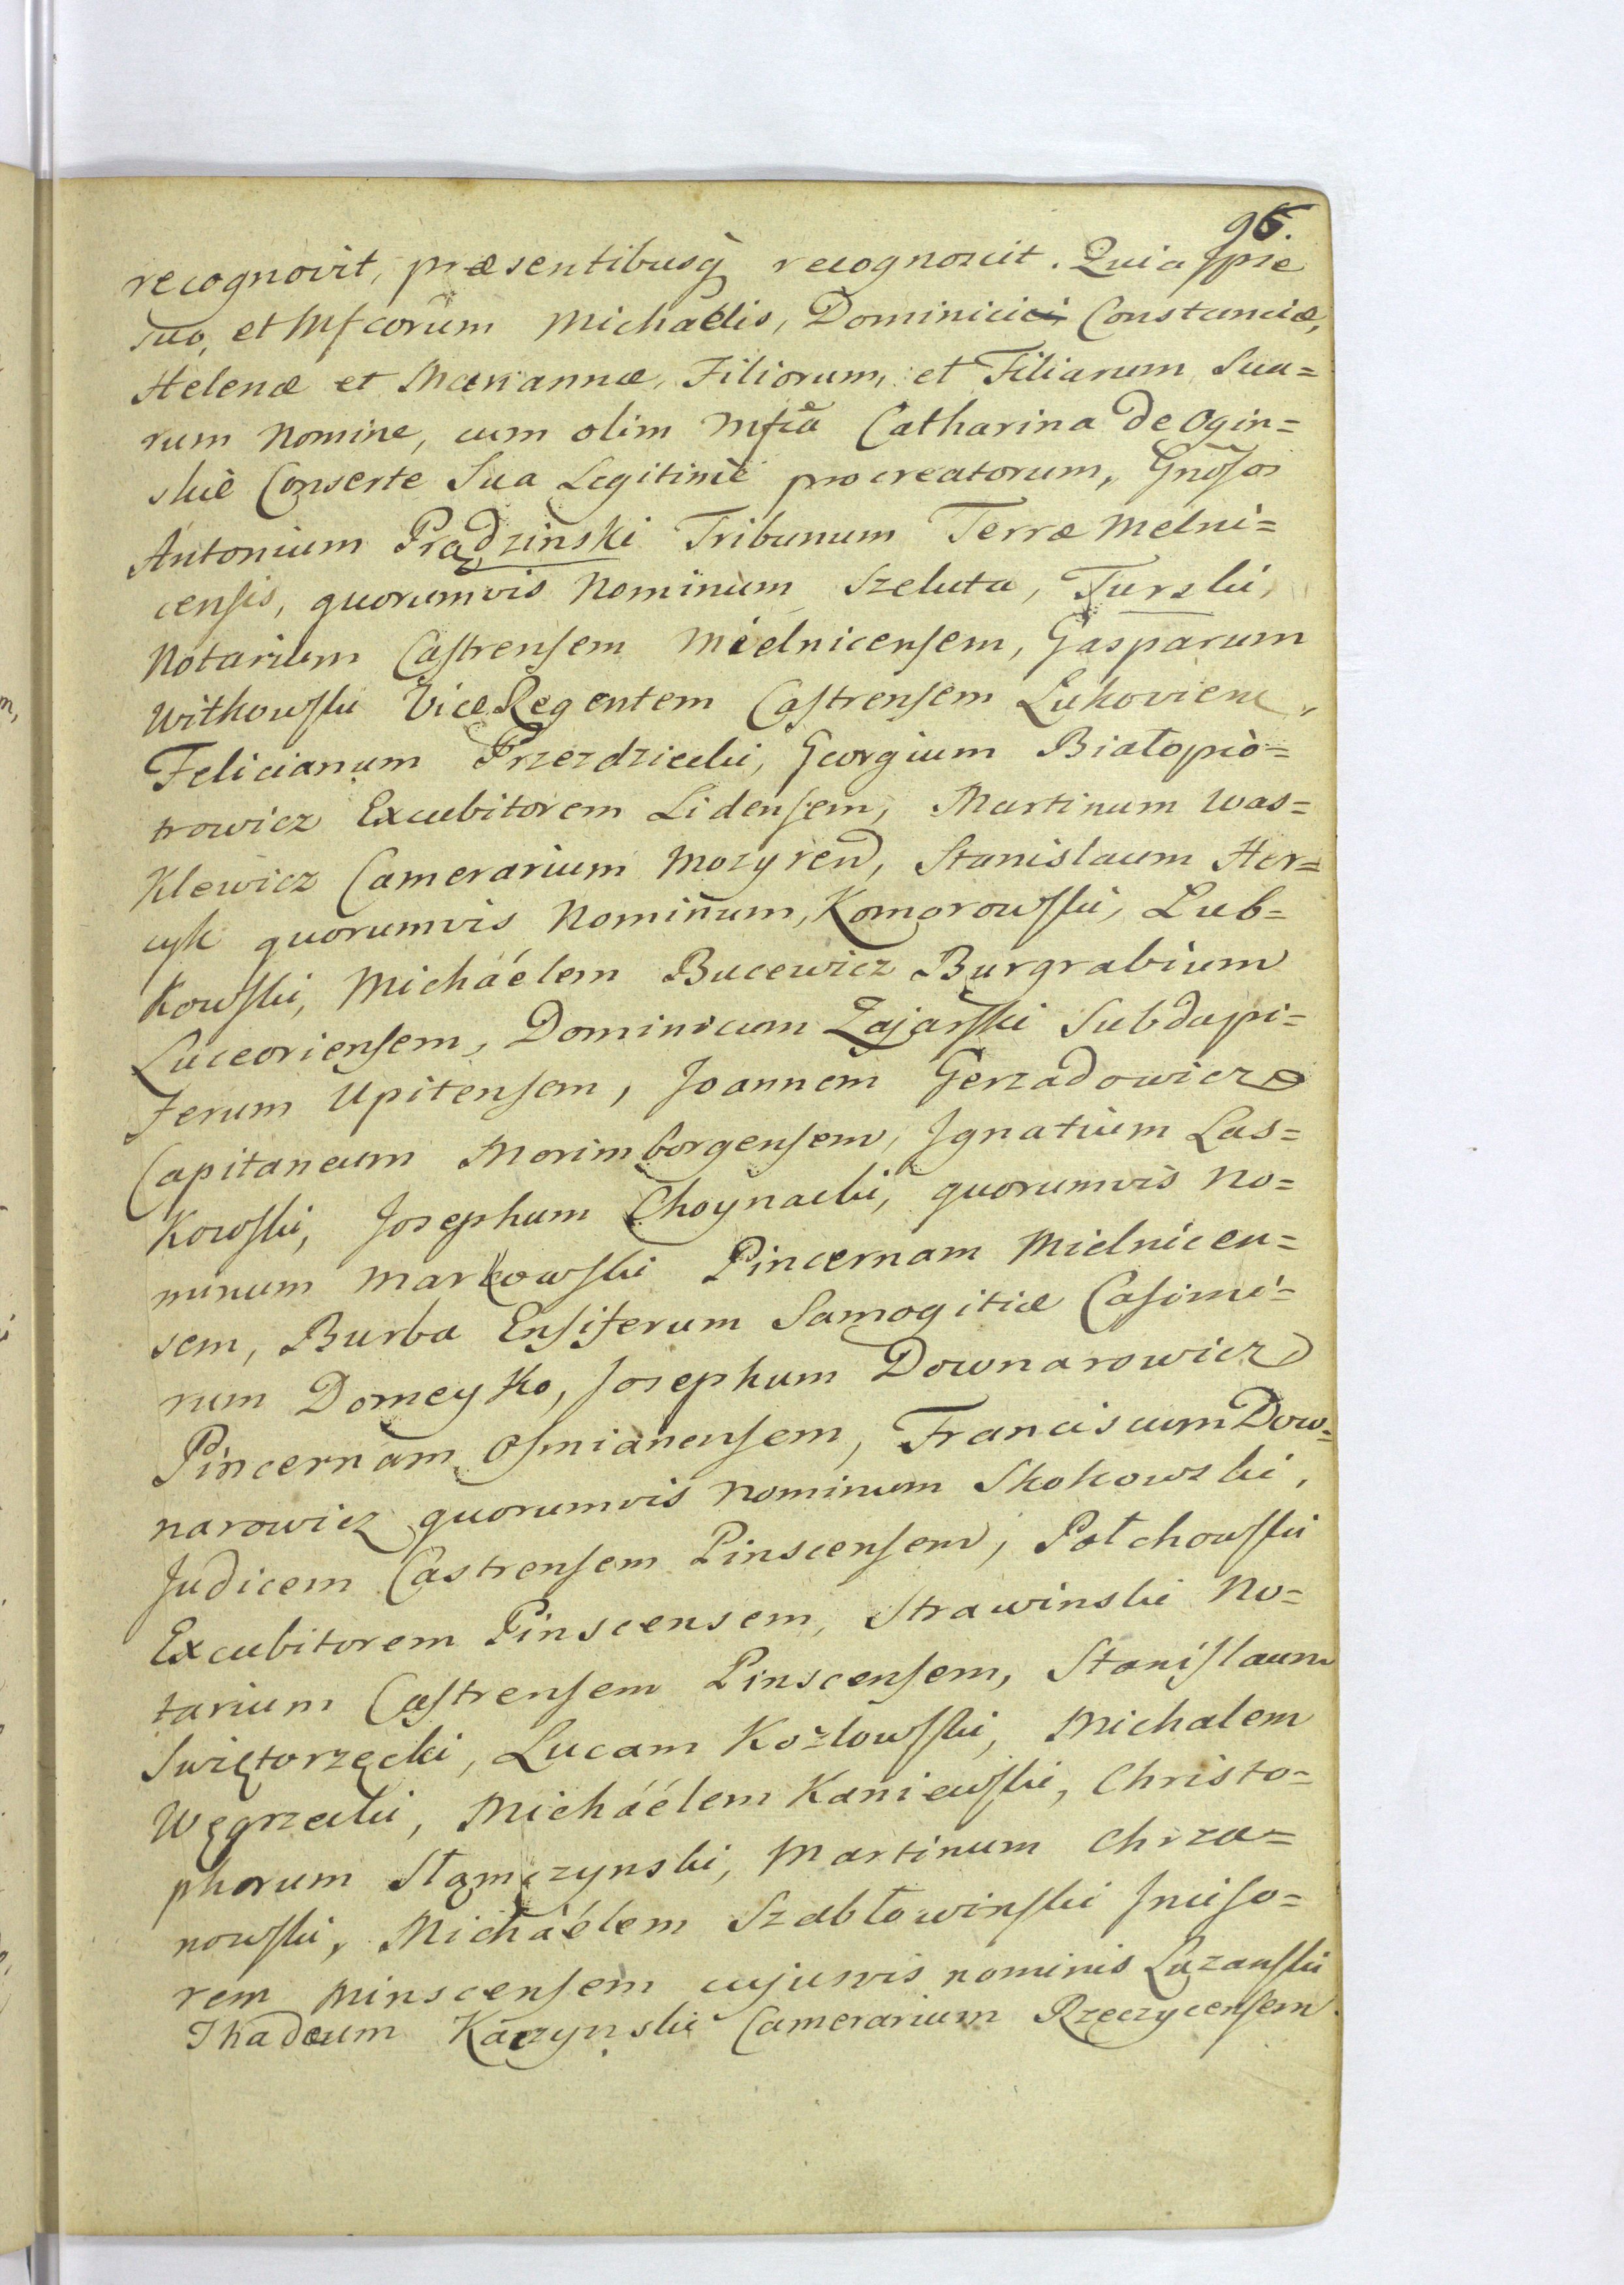 96.
recognovit, præsentibusq̃ recognoscit. Quia Ipse
suo, et Mfcorum Michaelis, Dominici Constanciæ,
Helenæ et Mariannæ, Filiorum, et Filiarum Sua=
rum Nomine, cum olim Mfca Catharina de Ogin=
skie Conserte Sua Legitimè procreatorum, Gnõsos
Antonium Prądzinski Tribunum Terræ Mèlni=
censis, quorumvis Nominum Szeluta, Turski,
Notarium Castrensem Mielnicensem, Gasparum
Witkowski ViceRegentem Castrensem Lukoviene,
Felicianum Przezdziecki, Georgium Białopio=
trowicz Excubitorem Lidensem, Martinum Was=
Klewicz Camerarium Mozyren, Stanislaum Her=
cyk quorumvis Nominum, Komorowski, Lub=
Kowski, Micháélem Bucewicz Burgrabium
Luceoriensem, Dominicum Zajarski Subdapi=
ferum Upitensem, Joannem Gerzadowicz
Capitaneum Morimborgensem, Ignatium Las=
Kowski, Josephum Choynacki, quorumvis No=
minum Markowski Pincernam Mielnicen=
sem, Burba Ensiferum Samogitiæ Casimi=
rum Domeyko, Josephum Downarowicz
Pincernam Osmianensem, Franciscum Dow=
narowicz quorumvis Nominum Skokowski,
Judicem Castrensem Pinscensem, Połchowski
Excubitorem Pinscensem, Strawinski No=
tarium Castrensem Pinscensem, Stanislaum
Swiętorzęcki, Lucam Kozłowski, Michalem
Węgrzecki, Micháélem Kaniewski, Christo=
phorum Słąmczynski, Martinum Chrza=
nowski, Micháélem Szabłowinski Inciso=
rem Minscensem cujusvis nominis Łazanski
Thadeum Kaczynski Camerarium Rzeczycensem